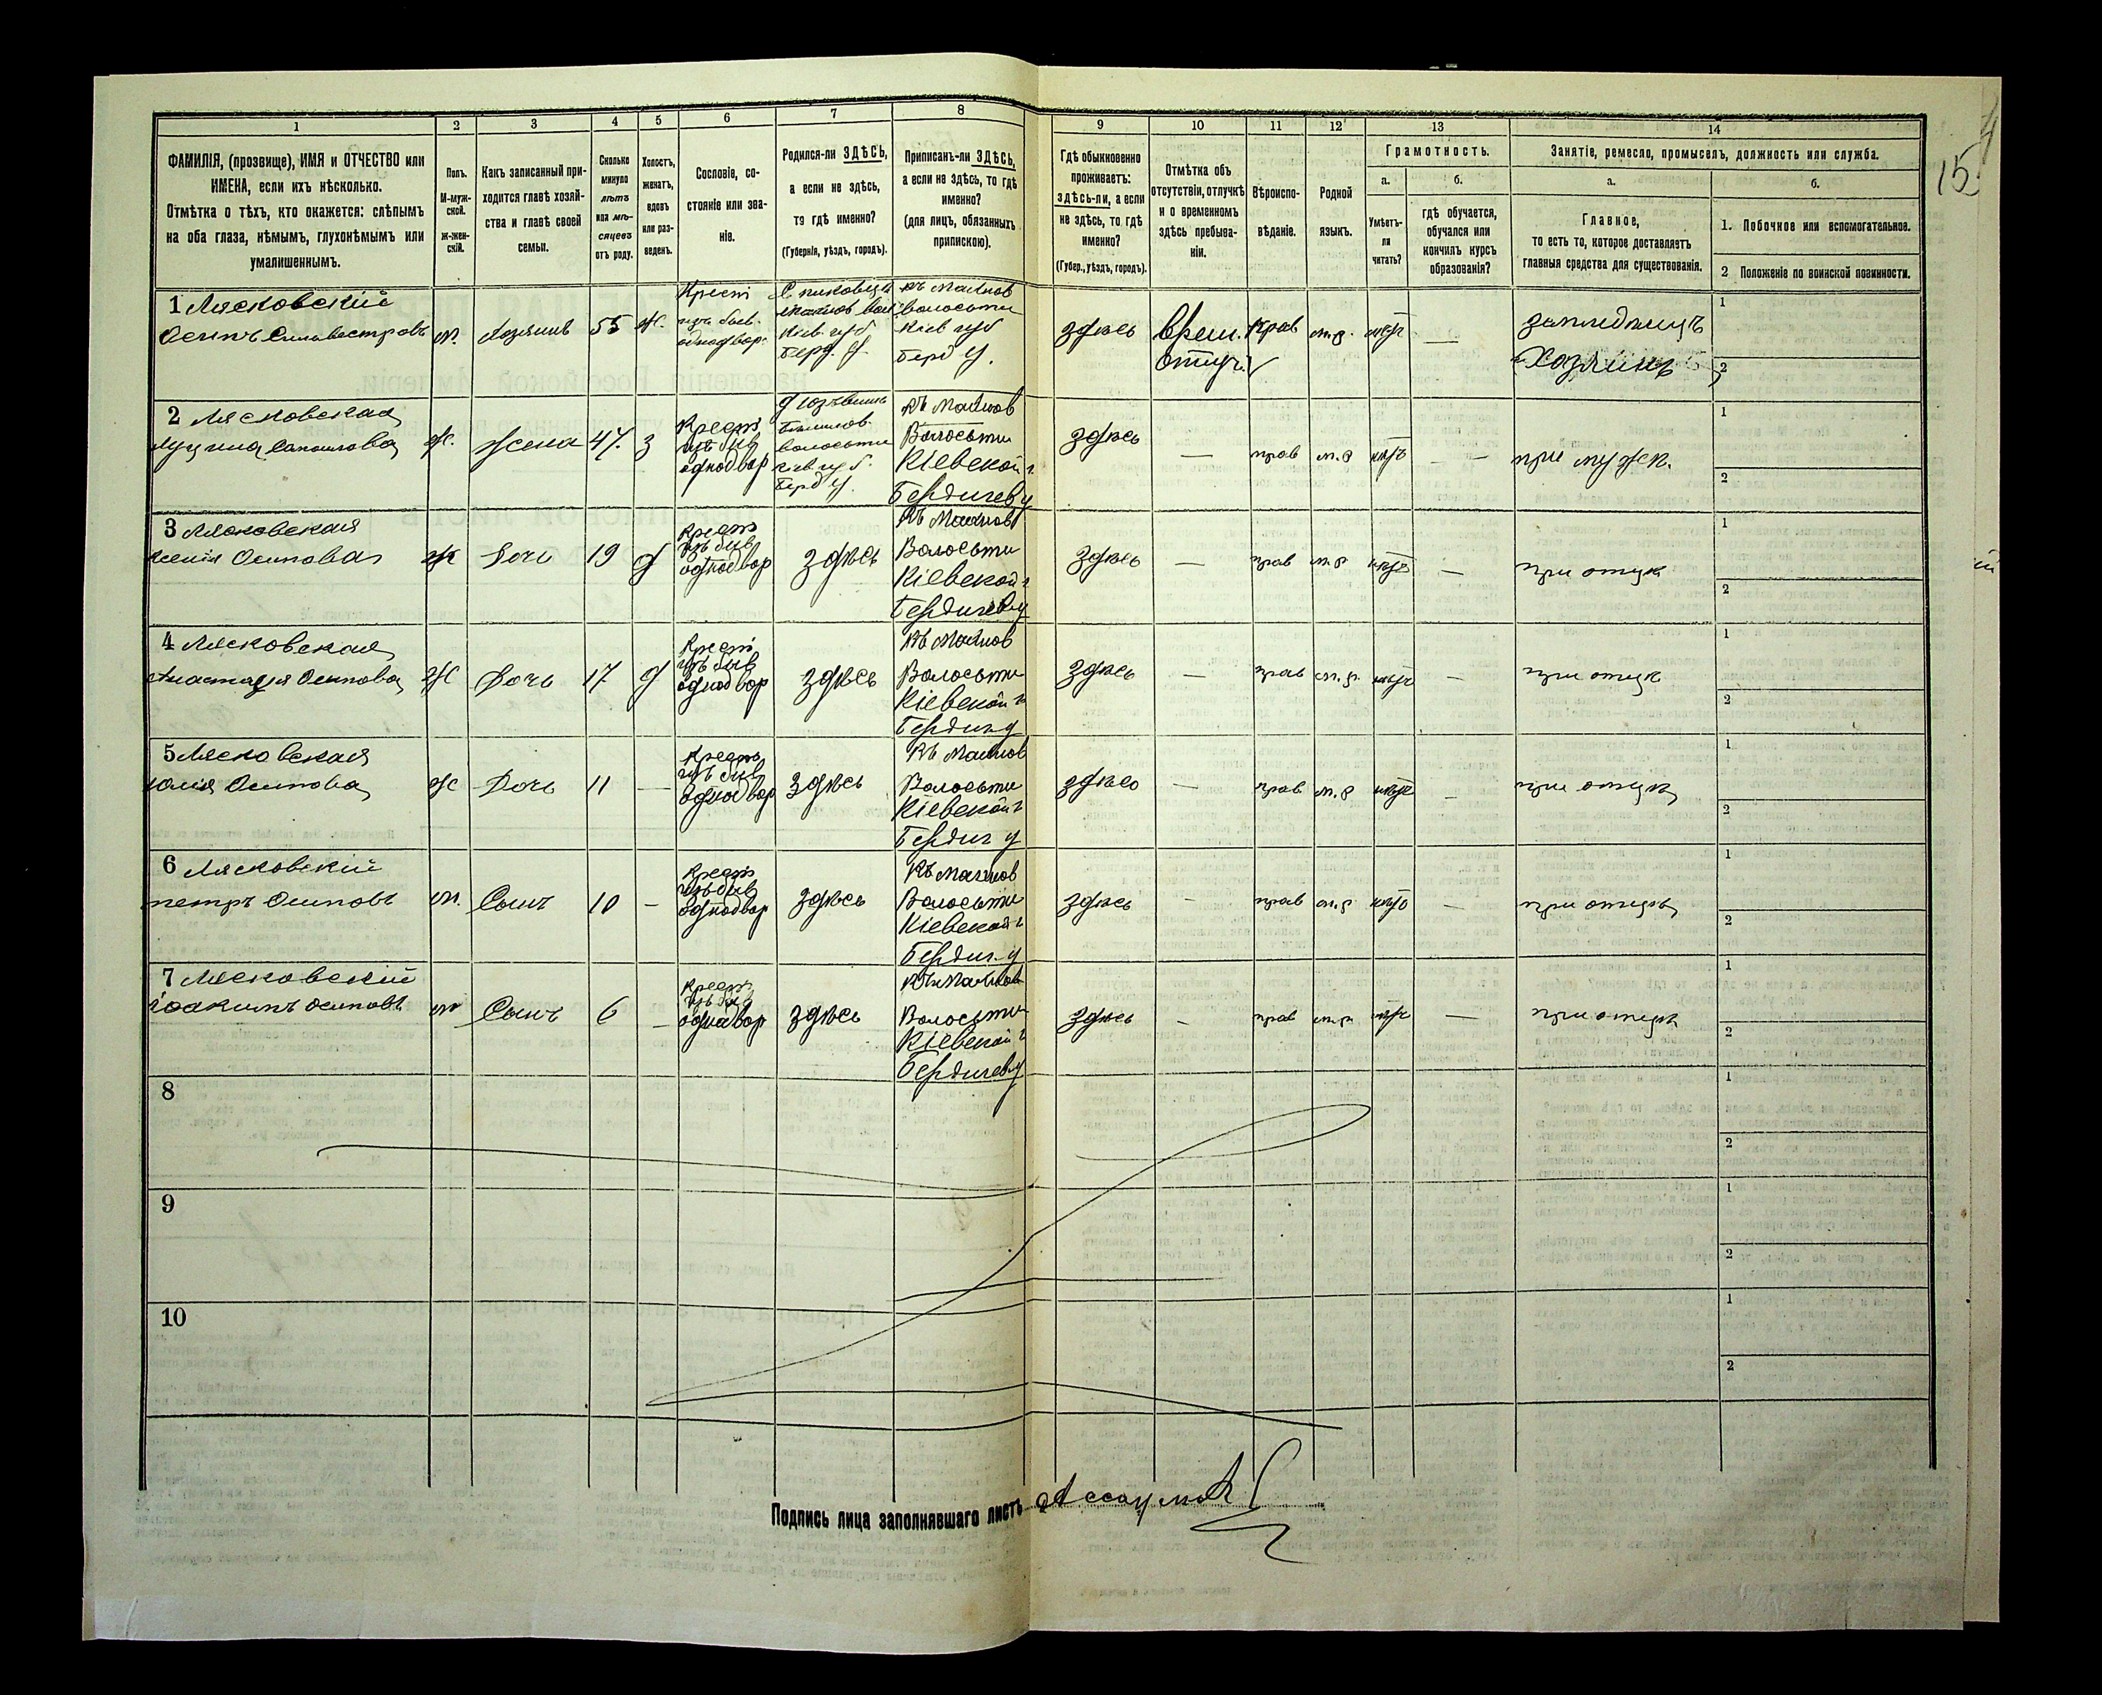 1
2
3
4
5
6
7
8
9
10
11
12
13
14
15
ФАМИЛІЯ, (прозвище), ИМЯ и ОТЧЕСТВО или
ИМЕНА, если ихъ нѣсколько.
Отмѣтка о тѣхъ, кто окажется: слѣпымъ
на оба глаза, нѣмымъ, глухонѣмымъ или
умалишеннымъ.
Полъ.
М-муж-
ской.
Ж-жен-
скій.
Какъ записанный при-
ходится главѣ хозяй-
ства и главѣ своей
семьи.
Сколько
минуло
лѣтъ
или мѣ-
сяцевъ
отъ роду.
Холостъ,
женатъ,
вдовъ
или раз-
веденъ.
Сословіе, со-
стояніе или зва-
ніе.
Родился-ли ЗДѢСЬ,
а если не здѣсь,
то гдѣ именно?
(Губернія, уѣздъ, городъ).
Приписанъ-ли ЗДѢСЬ,
а если не здѣсь, то гдѣ
именно?
(для лицъ, обязанныхъ
припискою).
Гдѣ обыкновенно
проживаетъ:
здѣсь-ли, а если
не здѣсь, то гдѣ
именно?
(Губер., уѣздъ, городъ).
Отмѣтка объ
отсутствіи, отлучкѣ
и о временномъ
здѣсь пребыва-
ніи.
Вѣроиспо-
вѣданіе.
Родной
языкъ.
Грамотность.
а.
Умѣетъ-
ли
читать?
б.
гдѣ обучается,
обучался или
кончилъ курсъ
образованія?
Занятіе, ремесло, промыселъ, должность или служба.
а.
Главное,
то есть то, которое доставляетъ
главныя средства для существованія.
б.
1. Побочное или вспомогательное.
2 Положеніе по воинской повинности.
1 Лясковскій
Осипъ Сильвестровъ
м.
Хозяинъ
55
ж.
Крест
изъ быв.
однодвор.
Кіев. губ
Берд. у.
Къ Махнов
волости
Кіев губ
Берд у.
здѣсь
Врем.
отлуч.
Прав
м.р.
нѣт
—
земледѣлецъ
Хозяинъ
1
2
2 Лясковская
ж.
жена
47.
з
Крест
изъ быв
однодвор
волости
Кіев губ.
Берд у.
Къ Махнов
Волости
Кіевской г
Бердичев у
здѣсь
—
прав
м.р
нѣтъ
—
при мужѣ.
1
2
3 Лясковская
Ксенія Осипова
ж
Дочь
19
д
Крест
изъ быв
однодвор
здѣсь
Къ Махнов
Волости
Кіевской г
Бердичев у
здѣсь
—
прав
м.р
нѣтъ
—
при отцѣ
1
2
4 Лясковская
Анастасія Осипова
ж
Дочь
17
д
Крест
изъ быв
однодвор
здѣсь
Къ Махнов
Волости
Кіевской г
Бердич у
здѣсь
—
прав
м.р.
нѣт
—
при отцѣ
1
2
5 Лясковская
Юлія Осипова
ж
Дочь
11
—
Крест
изъ быв
однодвор
здѣсь
Къ Махнов
Волости
Кіевской г
Бердич у
здѣсь
—
прав
м.р
нѣт
—
при отцѣ
1
2
6 Лясковскій
Петръ Осиповъ
м.
Сынъ
10
—
Крест
изъ быв
однодвор
здѣсь
Къ Махнов
Волости
Кіевской г
Бердич у
здѣсь
-
прав
м.р
нѣтъ
—
при отцѣ
1
2
7 Лясковскій
Іоакимъ Осиповъ
м
Сынъ
6
—
Крест
изъ быв
однодвор
здѣсь
Къ Махнов
Волости
Кіевской г
Бердичев у
здѣсь
-
прав
м.р.
нѣт
—
при отцѣ
1
2
8
1
2
9
1
2
10
1
2
Подпись лица заполнявшаго листъ